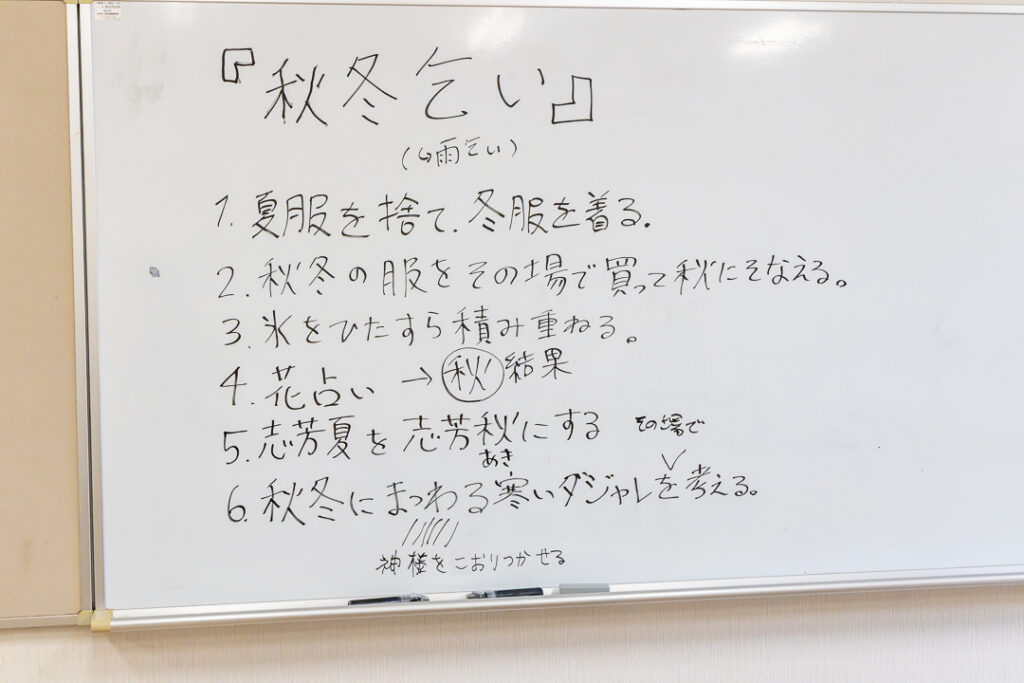 『秋冬乞い』
(↪雨乞い)
1. 夏服を捨て、冬服を着る。
2. 秋冬の服をその場で買って秋にそなえる。
3. 氷をひたすら積み重ねる。
4. 花占い → 秋 結果
5. 志芳夏を志芳秋にする
あき
その場で
6. 秋冬にまつわる寒いダジャレを考える。
神様をこおりつかせる